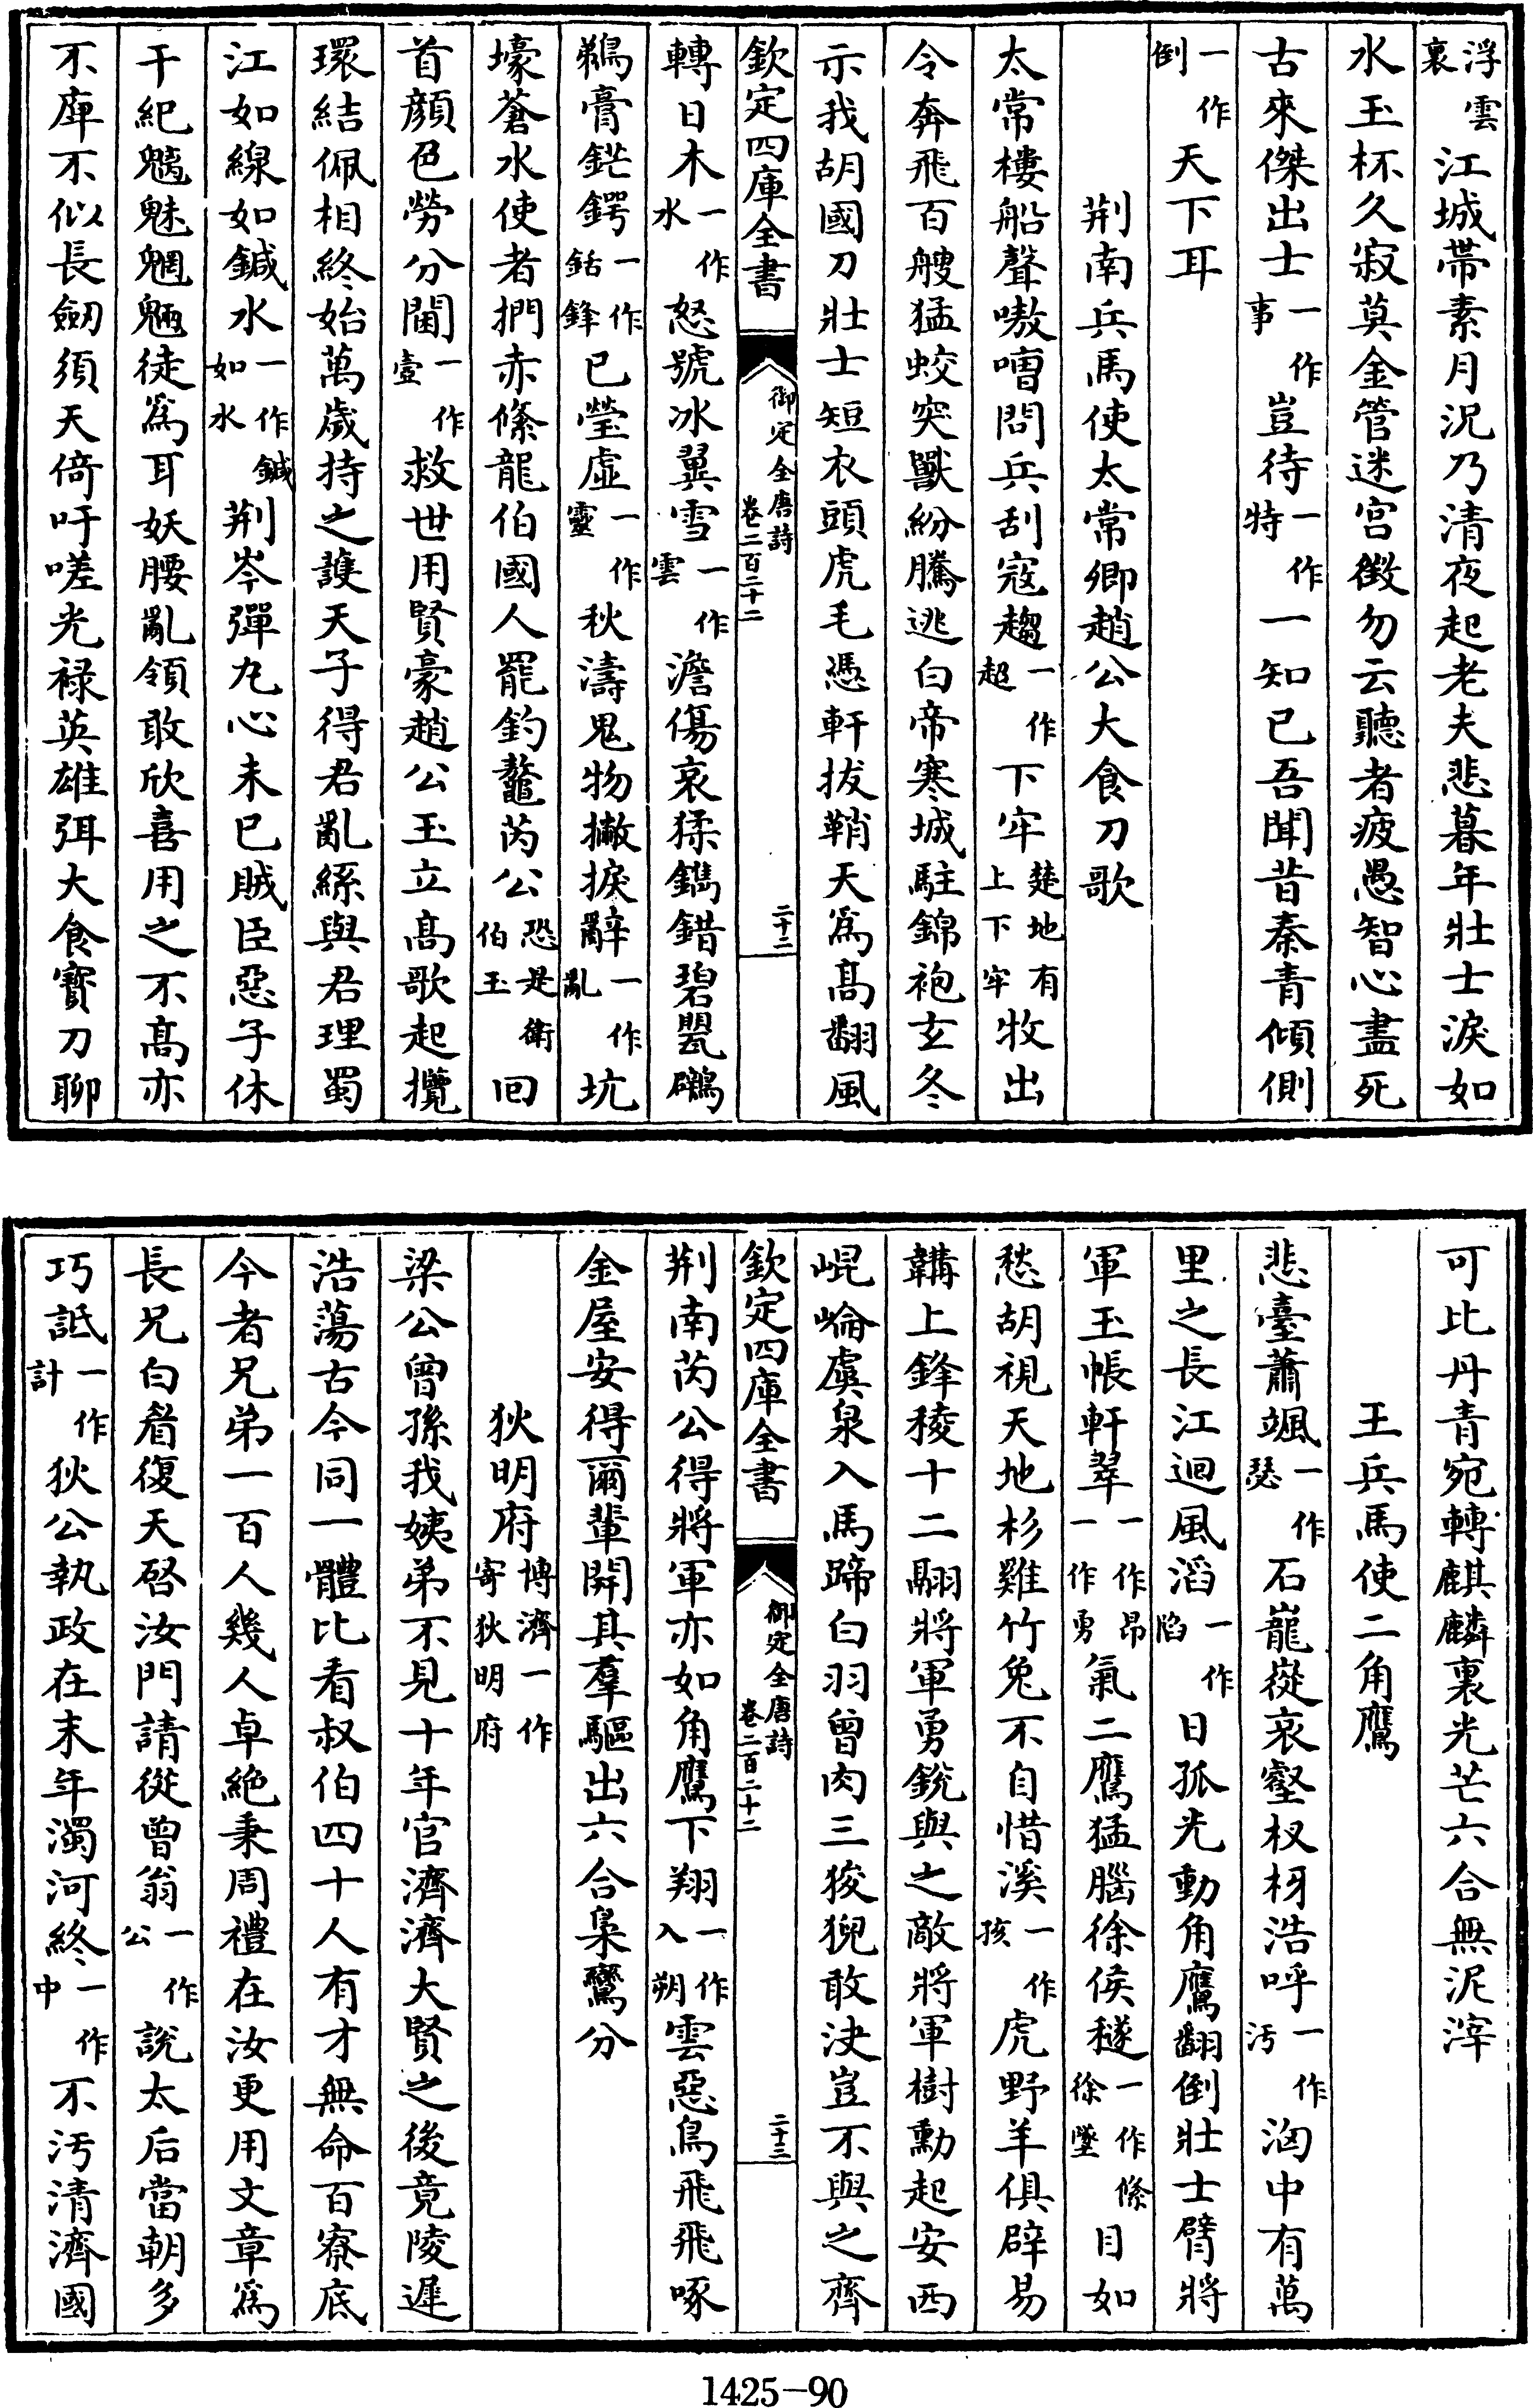 浮雲裏江城帶素月況乃清夜起老夫悲暮年壯士淚如
水玉杯久寂莫金管迷宮徵勿云聽者疲愚智心盡死
古來傑出士一作事豈待一作特一知已吾聞昔秦青傾側
一作倒天下耳
荆南兵馬使太常卿趙公大食刀歌
太常樓船聲嗷嘈問兵刮寇趨一作超下牢楚地有上下牢牧出
令奔飛百艘猛蛟突獸紛騰逃白帝寒城駐錦袍玄冬
示我胡國刀壯士短衣頭虎毛憑軒拔鞘天爲髙翻風
欽定四庫全書
御定全唐詩
卷二百二十二
二十二
轉日木一作水怒號冰翼雪一作雲澹傷哀猱鐫錯碧甖鸊
鵜膏鋩鍔一作銛鋒已瑩虛一作靈秋濤鬼物撇捩辭一作亂坑
壕蒼水使者捫赤絛龍伯國人罷釣鼇芮公恐是衛伯玉回
首顔色勞分閫一作壼救世用賢豪趙公玉立髙歌起攬
環結佩相終始萬歲持之䕶天子得君亂絲與君理蜀
江如線如鍼水一作鍼如水荆岑彈丸心未已賊臣惡子休
干紀魑魅魍魎徒爲耳妖腰亂領敢欣喜用之不髙亦
不庳不似長劒須天倚吁嗟光祿英雄弭大食寳刀聊
可比丹青宛轉麒麟裏光芒六合無泥滓
王兵馬使二角鷹
悲臺蕭颯一作瑟石巃嵸哀壑杈枒浩呼一作汚洶中有萬
里之長江迴風滔一作陷日孤光動角鷹翻倒壯士臂將
軍玉帳軒翠一作昂一作勇氣二鷹猛腦徐侯穟一作絛徐墜目如
愁胡視天地杉雞竹兔不自惜溪一作孩虎野羊俱辟易
韝上鋒稜十二翮將軍勇銳與之敵將軍樹勳起安西
崐崘虞泉入馬蹄白羽曾肉三狻猊敢決豈不與之齊
欽定四庫全書
御定全唐詩
卷二百二十二
二十三
荆南芮公得將軍亦如角鷹下翔一作入朔雲惡鳥飛飛啄
金屋安得爾輩開其羣驅出六合梟鸞分
狄明府博濟一作寄狄明府
梁公曾孫我姨弟不見十年官濟濟大賢之後竟陵遲
浩蕩古今同一體比看叔伯四十人有才無命百寮底
今者兄弟一百人幾人卓絶秉周禮在汝更用文章爲
長兄白眉復天啓汝門請從曾翁一作公說太后當朝多
巧詆一作計狄公執政在末年濁河終一作中不汚清濟國
1425-90